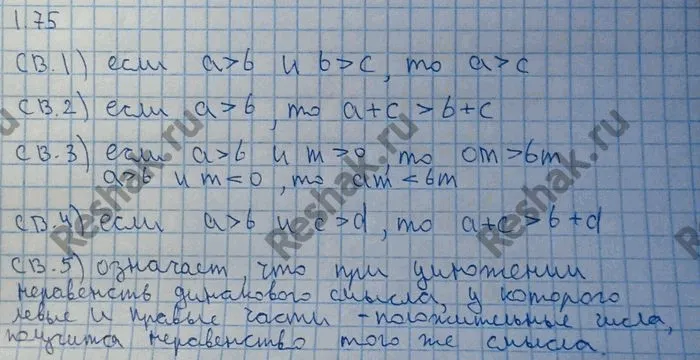 1.75
св.1) если a>b и b>c, то a>c
св.2) если a>b, то a+c >b+c
св.3) если a>b и m>0, то am>bm
a>b и m<0, то am<bm
св.4) если a>b и c>d, то a+c>b+d
св.5) означает, что при умножении
неравенств динакового смысла, у которого
левые и правые части - положительные числа,
получится неравенство того же смысла
Reshak.ru
Reshak.ru
Reshak.ru